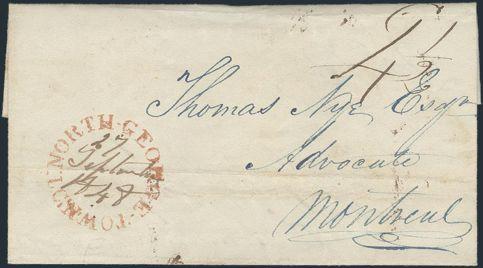 4 1/2
Thomas Nye Esqr
Advocate
Montreal
NORTH-GEORGE-TOWN
27
September
1848